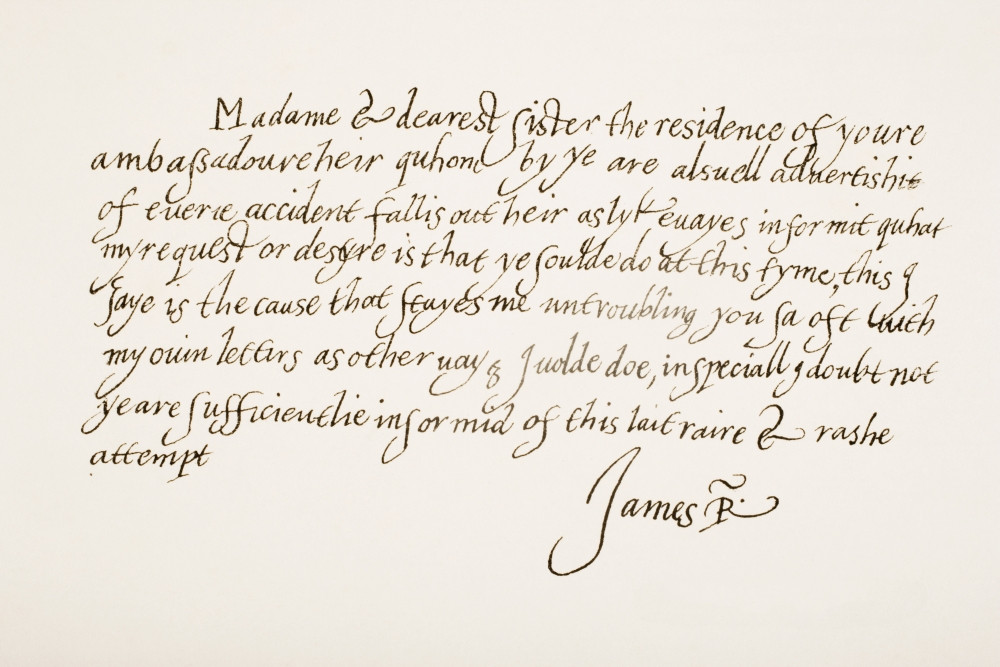 Madame & dearest sister the residence of youre
ambassadoure heir quhom by ye are alsuell aduertishit
of euerie accident fallis out heir as lyk euayes informit quhat
my request or desyre is that ye soulde do at this tyme, this I
saye is the cause that stayes me untroubling you sa oft with
my ouin letters as other uayes I uolde doe, in speciall I doubt not
ye are sufficientlie informid of this lait raire & rashe
attempt
James R.